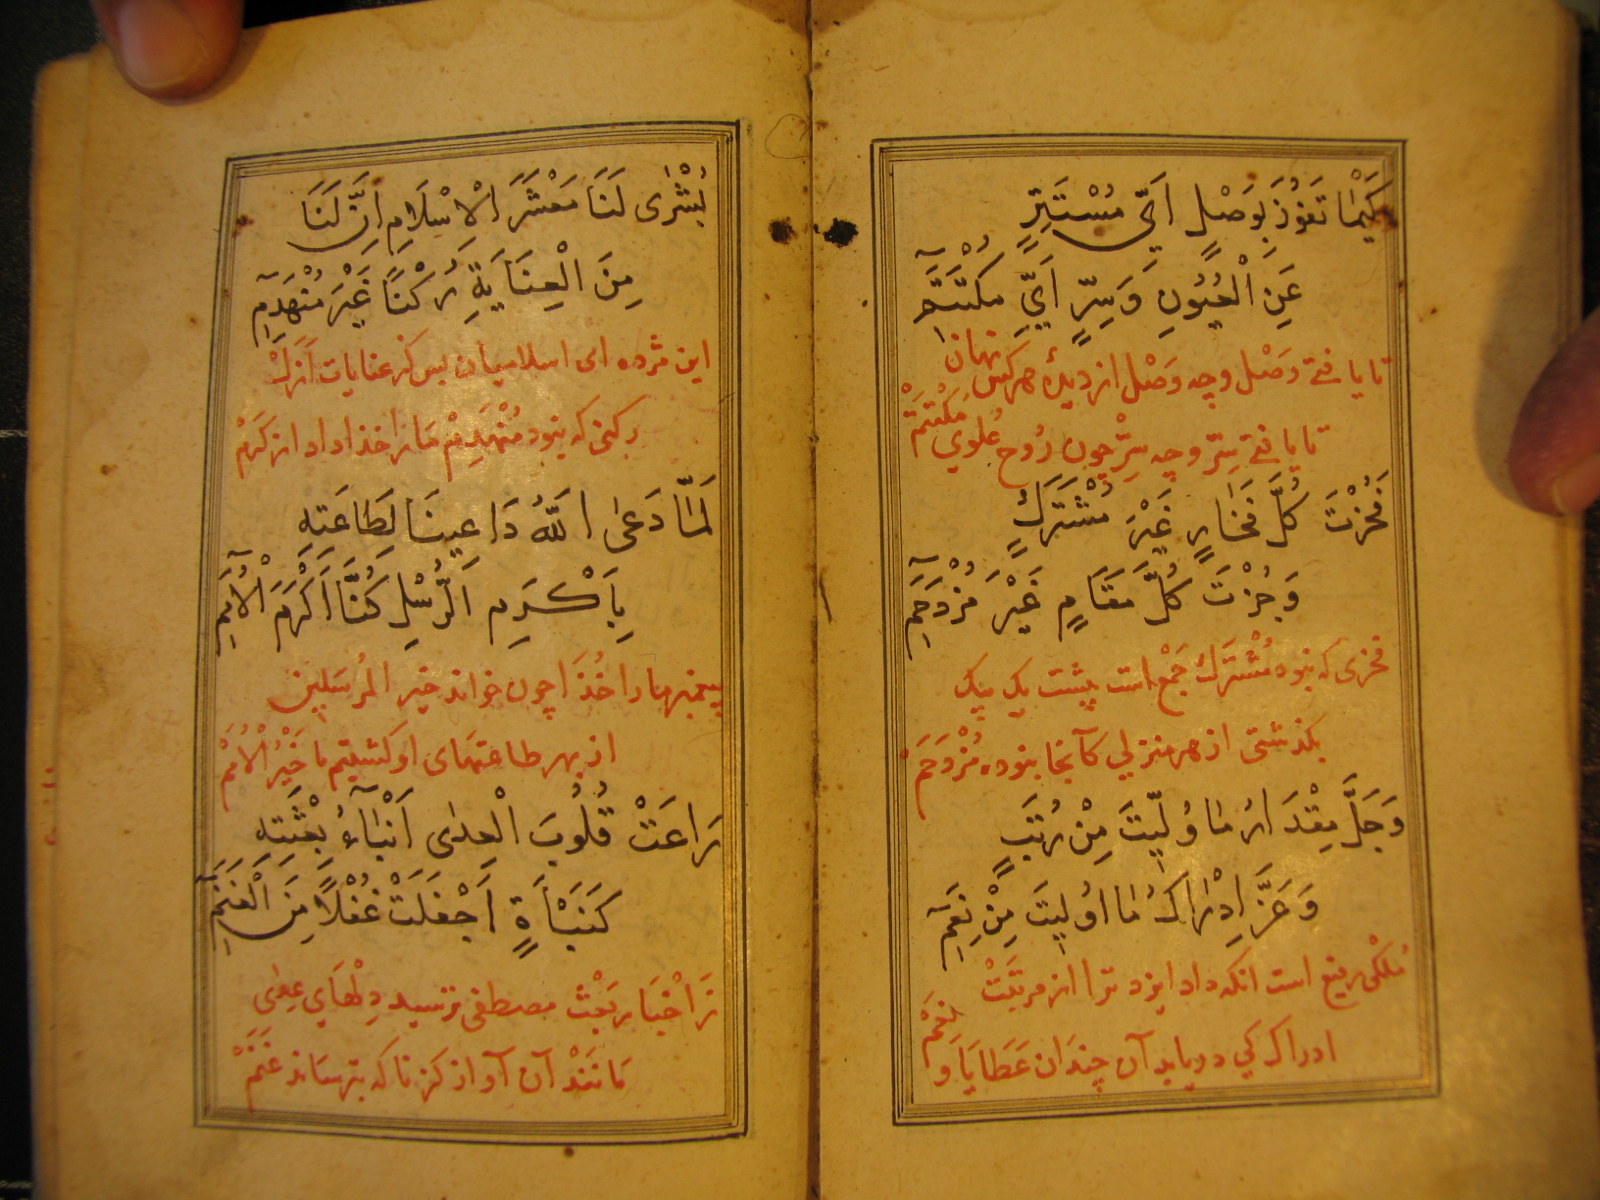 كَيْمَا تَفُوزَ بِوَصْلٍ اَيِّ مُسْتَتِرٍ
عَنِ الْعُيُونِ وَسِرٍّ اَيِّ مُكْتَتَمِ
تا یافتی وَصْل وچه وَصْل از دیدهٔ هر کس نهان
تا یافتی سِرّ وچه سِرّ چون رُوح عُلوي مُكْتَتَمْ
فَحُزْتَ كُلَّ فَخَارٍ غَيْرَ مُشْتَرَكٍ
وَجُزْتَ كُلَّ مَقَامٍ غَيْرَ مُزْدَحَمِ
فخری که نبود مُشْتَرَك جَمْع است پیشت یک بیک
بگذشتی از هر منزلی کآنجا نبوده مُزْدَحَمْ
وَجَلَّ مِقْدَارُ مَا وُلِّيتَ مِنْ رُتَبٍ
وَعَزَّ اِدْرَاكُ مَا اُولِيتَ مِنْ نِعَمِ
مُلكی رفیع است انکه داد ایزد ترا از مرتبَتْ
ادراک کی دریابد آن چندان عَطایَا وَ نِعَمْ
بُشْرٰى لَنَا مَعْشَرَ الْاِسْلَامِ اِنَّ لَنَا
مِنَ الْعِنَايَةِ رُكْنًا غَيْرَ مُنْهَدِمِ
این مژده ای اسلامیان بس کز عنایات اَزَلْ
رکنی که نبود مُنْهَدِمْ مَا را خذا داد از کَرَمْ
لَمَّا دَعَى اللّٰهُ دَاعِينَا لِطَاعَتِهِ
بِاَكْرَمِ الرُّسْلِ كُنَّا اَكْرَمَ الْاُمَمِ
پیغمبر ما را خُذَا چون خواند خیر المُرسَلین
از بهر طاعتهای او کشتیم ما خَيْرُ الْاُمَمْ
رَاعَتْ قُلُوبَ الْعِدٰى اَنْبَاءُ بِعْثَتِهِ
كَنَبْأَةٍ اَجْفَلَتْ غُفْلًا مِنَ الْغَنَمِ
زَاخْبَار بَعْث مصطفی ترسید دِلْهَاي عِدٰى
مَانَنْد آن آواز کز ناکه بترسَاند غَنَمْ